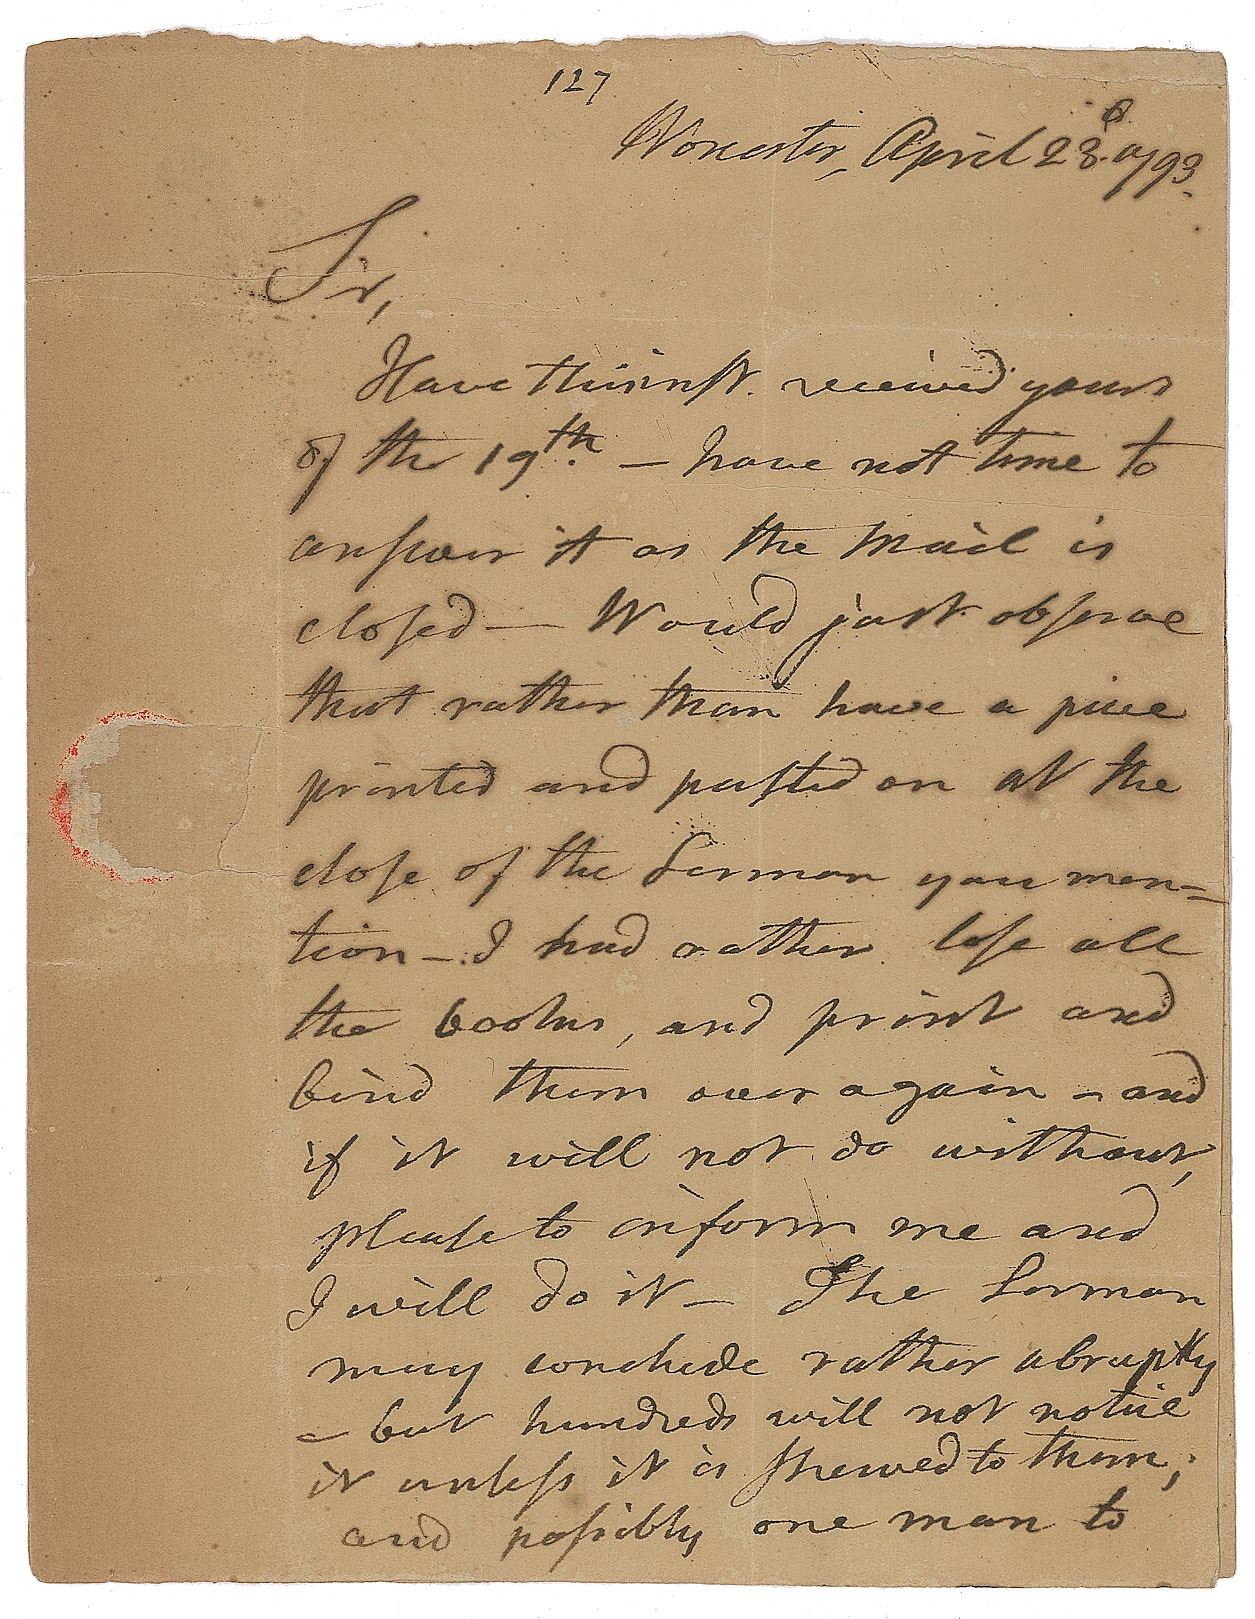 127
Worcester, April 28. 1793.
Sir,
Have this inst. received yours
of the 19th. — have not time to
answer it as the Mail is
closed — Would just observe
that rather than have a piece
printed and pasted on at the
close of the Sermon you men=
tion — I had rather lose all
the books, and print and
bind them over again — and
if it will not do without,
please to inform me and
I will do it — The Sermon
may conclude rather abruptly
— but hundreds will not notice
it unless it is shewed to them;
and possibly one man to